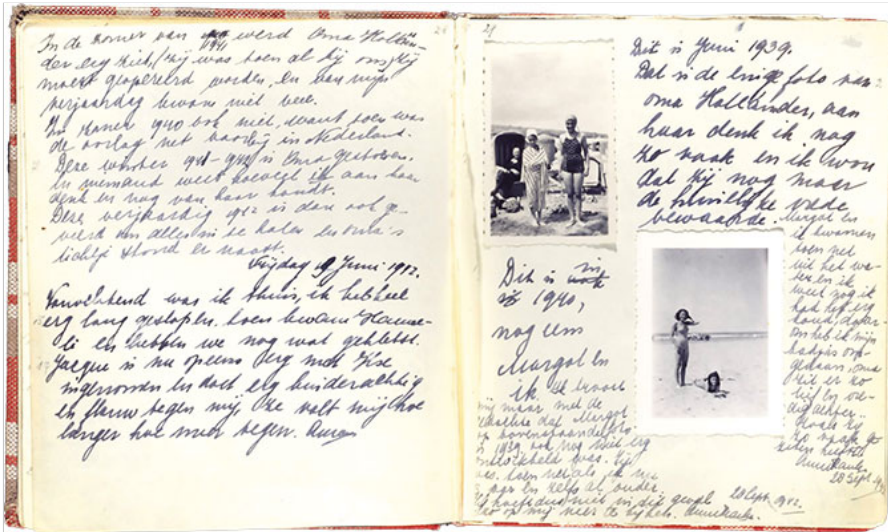 In de zomer van 1941 werd Oma Hollän-
der erg ziek, (zij was toen al bij ons) zij
moest geopereerd worden, en van mijn
verjaardag kwam niet veel.
In zomer 1940 ook niet, want toen was
de oorlog net voorbij in Nederland.
Deze winter 1941-1942 is Oma gestorven.
En niemand weet hoeveel ik aan haar
denk en nog van haar houdt.
Deze verjaardag 1942 is dan ook ge-
vierd om alles in te halen en oma's
lichtje stond er naast.
Vrijdag 19 Juni 1942.
Vanochtend was ik thuis, ik heb heel
erg lang geslapen, toen kwam Hanne-
li en hebben we nog wat gekletst.
Jacque is nu opeens erg met Ilse
ingenomen en doet erg kinderachtig
en flauw tegen mij, ze valt mij hoe
langer hoe meer tegen. Anne
29
Dit is Juni 1939.
Dat is de enige foto van
oma Hollander, aan
haar denk ik nog
zo vaak en ik wou
dat zij nog maar
de huiselijke vrede
bewaarde.
Margot en
ik kwamen
toen net
uit het wa-
ter en ik
weet nog ik
had het erg
koud, daar-
om heb ik mijn
badjas om-
gedaan, oma
zit er zo
lief en
achter.
Zoals zij
zo vaak
Anne Frank.
28 Sept.
Dit is in
1940,
nog eens
Margot en
ik. Ik troost
mij maar met de
dat Margot
op bovenstaande foto
in 1939 ook nog niet erg
ontwikkeld was. Zij
was toen net als ik nu
jaar en zelfs al ouder.
Ze hoeft dus niet in dit geval
zo op mij neer te kijken. Anne Frank.
28 Sept. 1942.